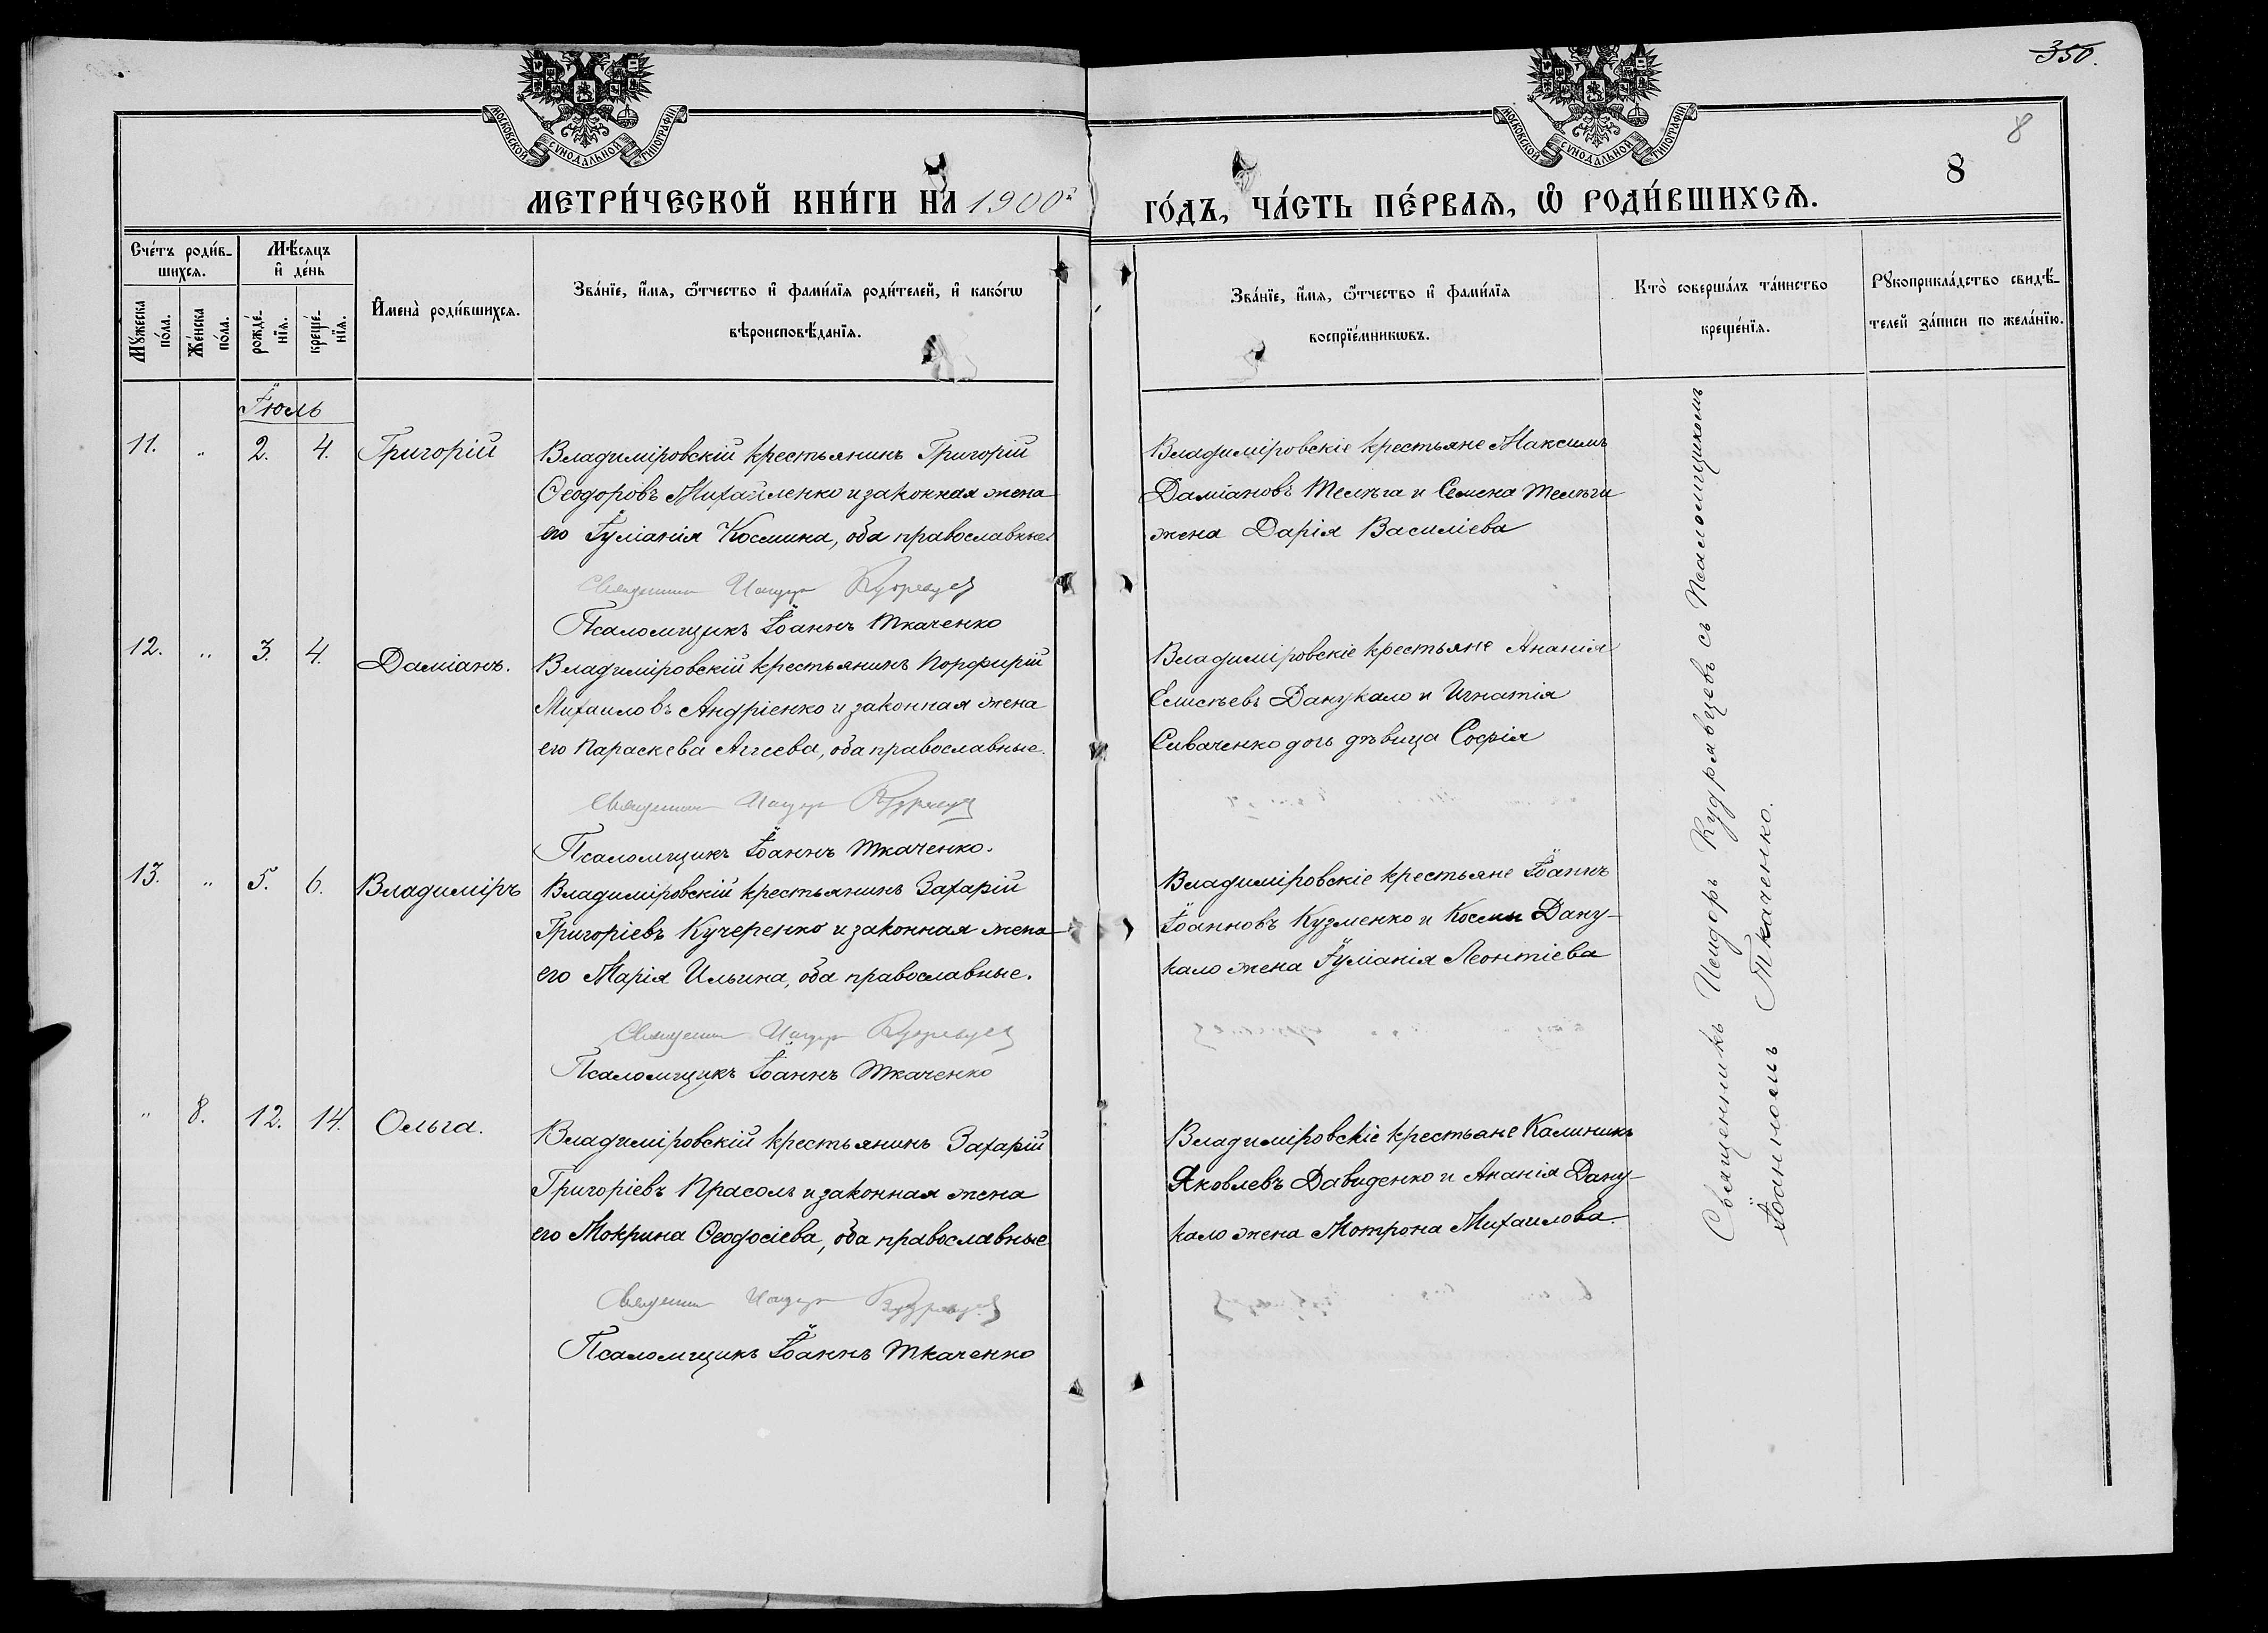 350.
8
8
МОСКОВСКОЙ СѴНОДАЛЬНОЙ ТИПОГРАФІИ
МОСКОВСКОЙ СѴНОДАЛЬНОЙ ТИПОГРАФІИ
МЕТРИ́ЧЕСКОЙ КНИ́ГИ НА 1900й
ГО́ДЪ, ЧА́СТЬ ПЕ́РВАѦ, Ѡ РОДИ́ВШИХСѦ.
Сче́тъ роди́в-
шихся.
Мѣ́сяцъ
и҆ де́нь
Мꙋ́жеска
по́ла.
Же́нска
по́ла.
рожде́-
нїя.
креще́-
нїя.
И҆мена̀ роди́вшихся.
Зва́нїе, и҆́мя, ѻ҆́тчество и҆ фами́лїя роди́телей, и҆ како́гѡ
вѣроисповѣ́данїя.
Зва́нїе, и҆́мя, ѻ҆́тчество и҆ фами́лїя
воспрїе́мникѡвъ.
Кто̀ соверша́лъ та́инство
креще́нїя.
Рꙋкоприкла́дство свидѣ́-
телей за́писи по жела́нїю.
Іюль
11. " 2. 4. Григорій
Владиміровскій крестьянинъ Григорій
Ѳеодоровъ Михайленко и законная жена
его Іуліанія Космина, оба православные
Священникъ Исидоръ Кудрявцевъ
Псаломщикъ Іоаннъ Ткаченко
Владиміровскіе крестьяне Максимъ
Даміановъ Телѣга и Семена Телѣги
жена Дарія Василіева
12. " 3. 4. Даміанъ.
Владиміровскій крестьянинъ Порфирій
Михаиловъ Андріенко и законная жена
его Параскева Аггеева, оба православные.
Священникъ Исидоръ Кудрявцевъ
Псаломщикъ Іоаннъ Ткаченко.
Владиміровскіе крестьяне Ананія
Елисѣевъ Данукало и Игнатія
Сиваченко дочь дѣвица Софія
13. " 5. 6. Владиміръ
Владиміровскій крестьянинъ Захарій
Григоріевъ Кучеренко и законная жена
его Марія Ильина, оба православные.
Священникъ Исидоръ Кудрявцевъ
Псаломщикъ Іоаннъ Ткаченко
Владиміровскіе крестьяне Іоаннъ
Іоанновъ Кузменко и Космы Дану-
кало жена Іуліанія Леонтіева
" 8. 12. 14. Ольга.
Владиміровскій крестьянинъ Захарій
Григоріевъ Прасолъ и законная жена
его Мокрина Ѳеодосіева, оба православные
Священникъ Исидоръ Кудрявцевъ
Псаломщикъ Іоаннъ Ткаченко
Владиміровскіе крестьяне Калиникъ
Яковлевъ Давиденко и Ананія Дану-
кало жена Мотрона Михаилова.
Священникъ Исидоръ Кудрявцевъ съ Псаломщикомъ
Іоанномъ Ткаченко.